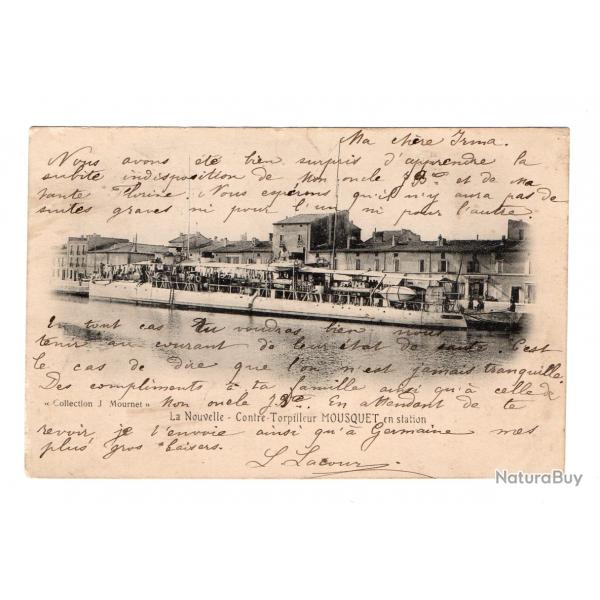 Ma chère Irma.
Nous avons été bien surpris d'apprendre la
subite indisposition de mon oncle JBte et de ma
tante Florine. Nous espérons qu'il n'y aura pas de
suites graves ni pour l'un ni pour l'autre
En tout cas tu voudras bien nous
tenir au courant de leur état de santé. C'est
le cas de dire que l'on n'est jamais tranquille.
Des compliments à ta famille ainsi qu'à celle de
« Collection J Mournet » mon oncle JBte. En attendant de te
La Nouvelle - Contre-Torpilleur MOUSQUET en station
revoir je t'envoie ainsi qu'à Germaine mes
plus gros baisers.
L Lacour
NaturaBuy